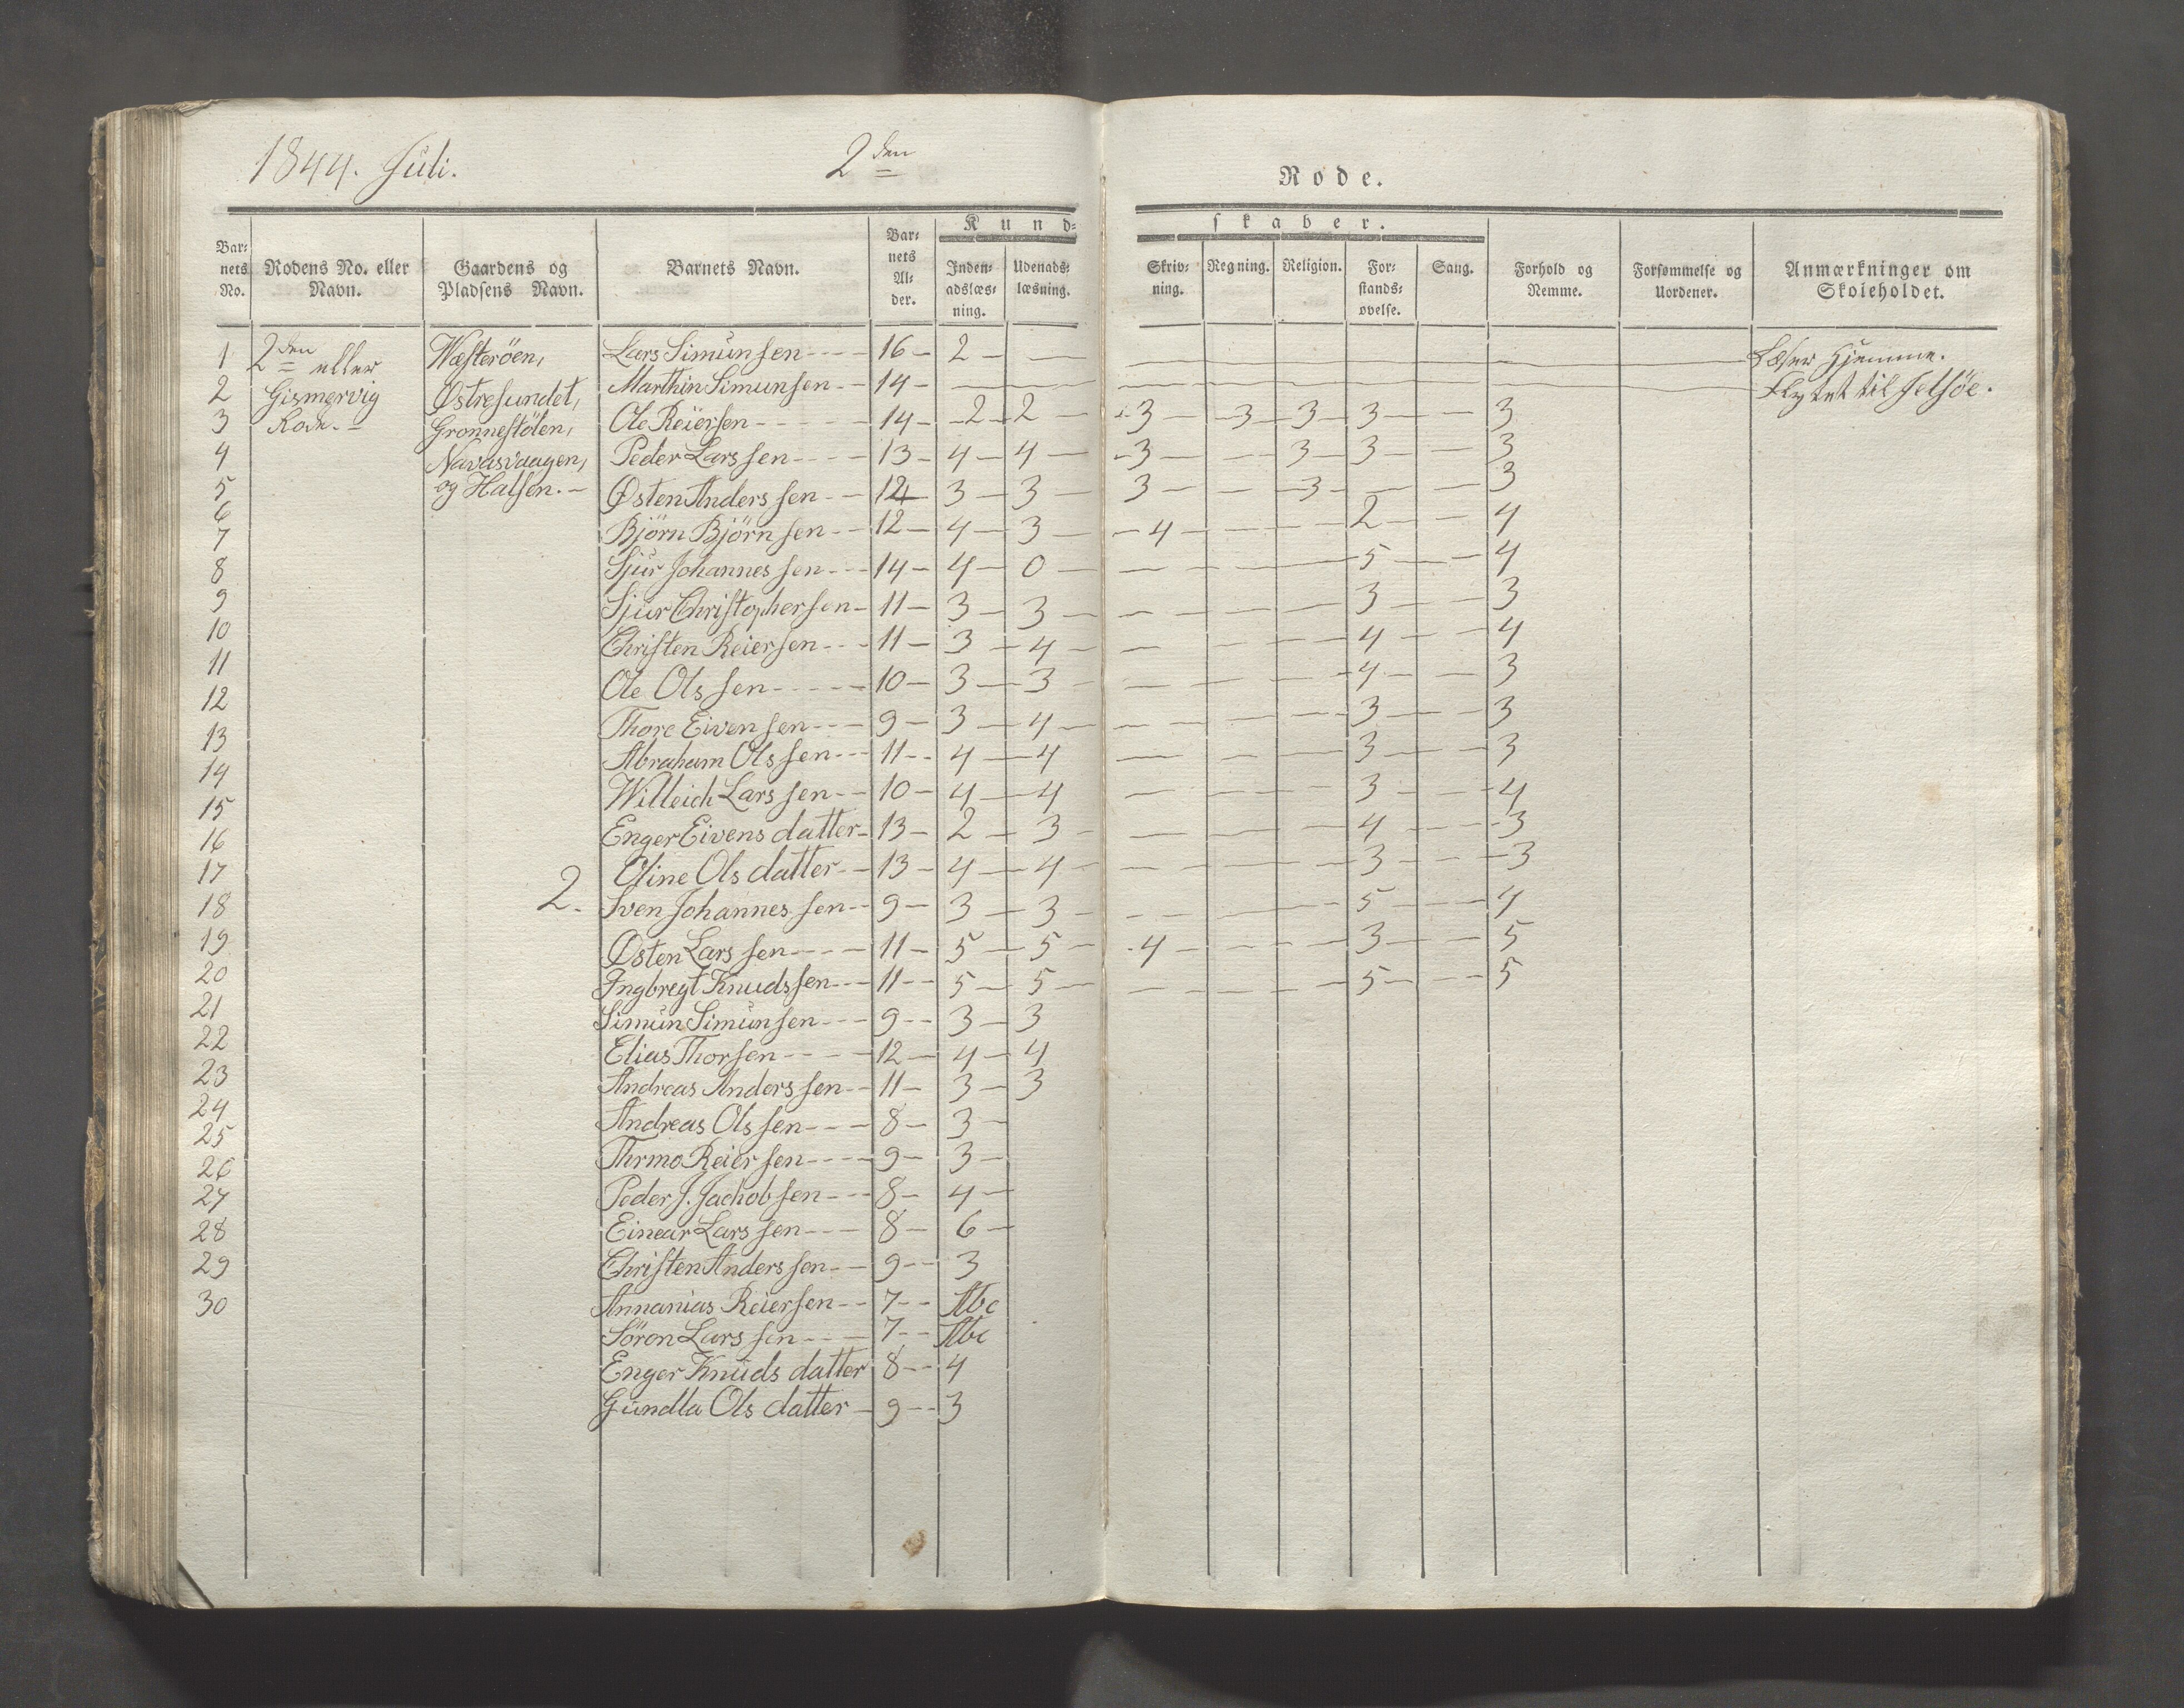 1844. Juli. 2den Rode.
Kundskaber.
Bar- nets No. | Rodens No. eller Navn. | Gaardens og Pladsens Navn. | Barnets Navn. | Bar- nets Al- der. | Inden- adslæs- ning. | Udenads- læsning. | Skriv- ning. | Regning. | Religion. | For- stands- øvelse. | Sang. | Forhold og Nemme. | Forsømmelse og Uordener. | Anmærkninger om Skoleholdet.
1 2den eller Wæsteröen, Lars Simunsen 16 2 Læser Hjemme.
2 Gismervig Østresundet, Marthin Simunsen 14 Flyttet til
3 Rode. Gronnestölen, Ole Reiersen 14 2 2 3 3 3 3 3
4 Navasvaagen, Peder Larssen 13 4 4 3 3 3 3
5 og Halsen. Østen Anderssen 12 3 3 3 3 3
6 Björn Björnsen 12 4 3 4 2 4
7 Sjur Johannessen 14 4 0 5 4
8 Sjur Christophersen 11 3 3 3 3
9 Christen Reiersen 11 3 4 4 4
10 Ole Olssen 10 3 3 4 3
11 Thore Eivensen 9 3 4 3 3
12 Abraham Olssen 11 4 4 3 3
13 Willeich Larssen 10 4 4 3 4
14 Enger Eivensdatter 13 2 3 4 3
15 Oline Olsdatter 13 4 4 3 3
16 2. Sven Johannessen 9 3 3 5 4
17 Østen Larssen 11 5 5 4 3 5
18 Ingbregt Knudssen 11 5 5 5 5
19 Simun Simunsen 9 3 3
20 Elias Thorsen 12 4 4
21 Andreas Anderssen 11 3 3
22 Andreas Olssen 8 3
23 Thrmo Reiersen 9 3
24 Peder J. Jachobsen 8 4
25 Einear Larssen 8 6
26 Christen Anderssen 9 3
27 Annanias Reiersen 7 Abc
28 Sören Larssen 7 Abc
29 Enger Knudsdatter 8 4
30 Gundla Olsdatter 9 3